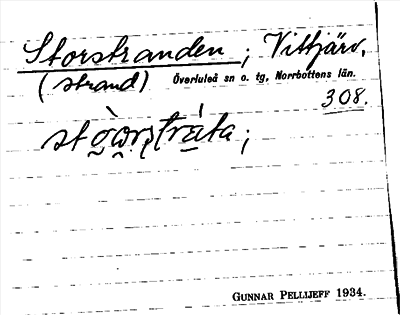 Storstranden; Vittjärv,
(strand) Överluleå sn o. tg, Norrbottens län.
308.
GUNNAR PELLIJEFF 1934.